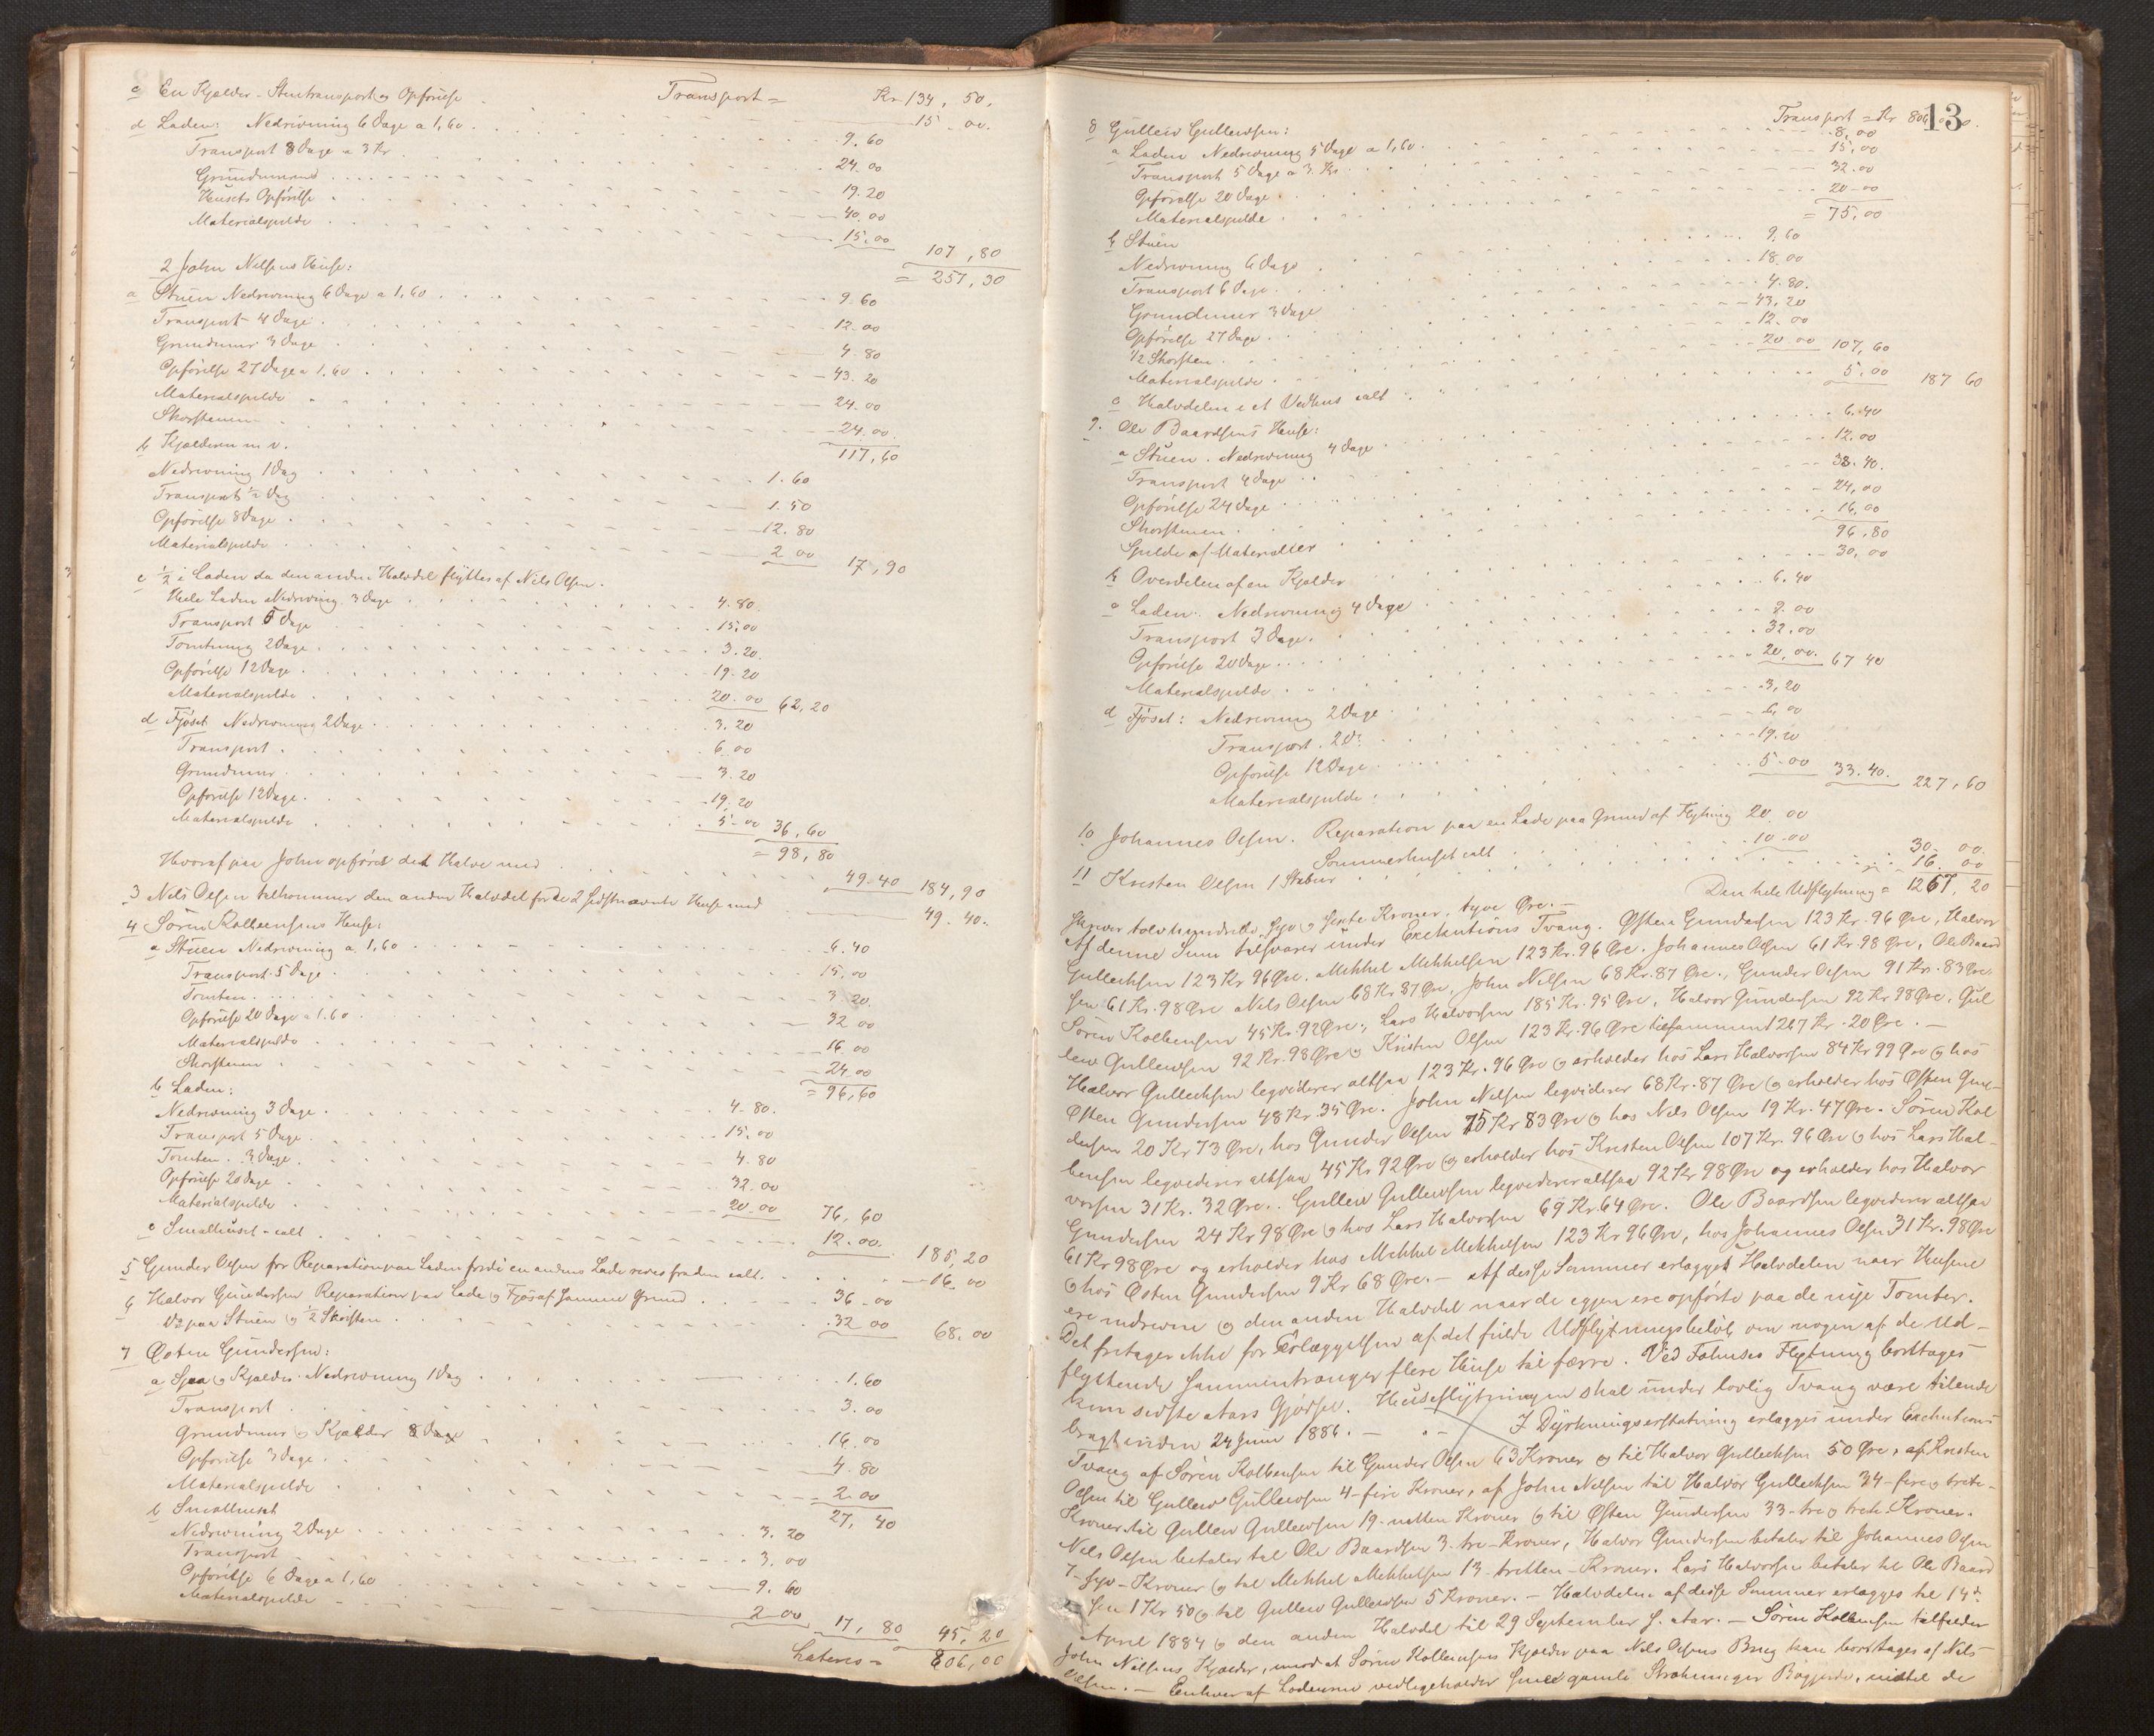 c En Kjelder - Stentransport og Opførelse . Transport = Kr 134, 50.
15 - 00.
d Laden: Nedrivning 6 Dage a 1,60 . 9.60
Transport 8 Dage a 3 Kr . 24.00
Grundmuren . 19.20
Husets Opførelse . 40.00
Materialspilde . 15.00 107,80
= 257,30
2 John Nilsens Huse:
a Stuen Nedrivning 6 Dage a 1,60 . 9.60
Transport 4 Dage . 12.00
Grundmur 3 Dage . 4.80
Opførelse 27 Dage a 1.60 . 43.20
Materialspilde . 24.00
Skorstenen . 24.00
117,60
b Kjælderen m. v.
Nedrivning 1 Dag . 1.60
Transport ½ Dag . 1.50
Opførelse 8 Dage . 12.80
Materialspilde . 2 00 17,90
c ½ i Laden da den anden Halvdel flyttes af Nils Olsen .
Hele Laden Nedrivning 3 Dage . 4.80.
Transport 5 Dage . 15,00
Tomtning 2 Dage . 3.20.
Opførelse 12 Dage . 19.20
Materialspilde . 20.00 62,20
d Fjöset Nedrivning 2 Dage . 3.20
Transport . 6.00
Grundmur . 3.20
Opførelse 12 Dage . 19.20
Materialspilde . 5-00 36,60
= 98,80
Hvoraf paa John opføres det Halve med . 49.40 184,90
3 Nils Olsen tilkommer den anden Halvdel for de 2 sidstnævnte Huse med 49. 40.
4 Søren Kolbensens Huse:
a Stuen Nedrivning a 1,60 . 6.40
Transport 5 Dage . 15,00
Tomten . 3 20.
Opførelse 20 Dage a 1.60 . 32 00
Materialspilde . 16.00
Skorstenen . 24.00
= 96,60
b Laden:
Nedrivning 3 Dage . 4.80.
Transport 5 Dage . 15.00
Tomten . 3 Dage . 4.80
Opførelse 20 Dage . 32.00
Materialspilde . 20.00 76,60
c Smalhuset - ialt . 12.00. 185,20
5 Gunder Olsen for Reparation paa Laden fordi en andens Lade rives fra den ialt . 16.00
6 Halvor Gundersen Reparation paa Lade og Fjøs af samme Grund . 36-00
Do paa Stuen og ½ Skorsten . 32 00 68.00
7 Østen Gundersen:
a Spa og Kjælder Nedrivning 1 Dag . 1.60
Transport . 3.00
Grundmur og Kjælder 8 Dage . 16.00
Opførelse 3 Dage . 4.80
Materialspilde . 2.00
27,40
b Smalhuset
Nedrivning 2 Dage . 3.20
Transport . 3.00
Opførelse 6 Dage a 1,60 . 9.60
Materialspilde . 2 00 17,80 45,20
Lateres = 806,00
13
Transport = Kr 806
8 Gullew Gullewsen:
a Laden Nedrivning 5 Dage a 1,60 . 8,00
Transport 5 Dage a 3 Kr . 15,00
Opførelse 20 Dage . 32.00
Materialspilde . 20-00
= 75,00
b Stuen
Nedrivning 6 Dage . 9.60
Transport 6 Dage . 18.00
Grundmur 3 Dage . 4.80.
Opførelse 27 Dage . 43,20
½ Skorsten . 12.00
Materialspilde . 20.00 107,60
c Halvdelen i et Vedhus ialt . 5.00 187 60
9. Ole Baardsens Huse:
a Stuen . Nedrivning 4 Dage . 6.40
Transport 4 Dage . 12.00
Opførelse 24 Dage . 38.40.
Skorstenen . 24,00
Spilde af Materialier . 16,00
96,80
b Overdelen af en Kjelder . 30,00
c Laden: Nedrivning 4 Dage . 6.40
Transport 3 Dage . 9.00
Opførelse 20 Dage . 32.00
Materialspilde . 20,00. 67 40
d Fjöset: Nedrivning 2 Dage . 3,20
Transport . 2 D: . 6 00
Opførelse 12 Dage . 19.20
Materialspilde . 5-00 33.40. 227,60
10 Johannes Olsen. Reparation paa en Lade paa Grund af Flytning 20.00
Sommerhuset ialt . 10.00 30. 00.
11 Kristen Olsen 1 Stabur . 16 00
Den hele Udflytning = 1267, 20
Skriver tolvhundrede, syv og sexti Kroner, tyve Øre.-
Af denne Sum tilsvarer under Exekutions Tvang. Østen Gundersen 123 Kr. 96 Øre, Halvor
Gulleksen 123 Kr 96 Øre. Mekkel Mekkelsen 123 Kr. 96 Øre. Johannes Olsen 61 Kr. 98 Øre, Ole Baard
sen 61 Kr. 98 Øre Nils Olsen 68 Kr 87 Øre, John Nilsen 68 Kr. 87 Øre, Gunder Olsen 91 Kr. 83 Øre
Søren Kolbensen 45 Kr. 92 Øre, Lars Halvorsen 185 Kr. 95 Øre, Halvor Gundersen 92 Kr 98 Øre, Gul
lew Gullewsen 92 Kr. 98 Øre og Kristen Olsen 123 Kr. 96 Øre tilsammen 1267 Kr. 20 Øre. -
Halvor Gulleksen leqviderer altsaa 123 Kr. 96 Øre og erholder hos Lars Halvorsen 84 Kr 99 Øre og hos
Østen Gundersen 48 Kr. 35 Øre. John Nilsen leqviderer 68 Kr. 87 Øre og erholder hos Østen Gun-
dersen 20 Kr 73 Øre, hos Gunder Olsen 75 Kr 83 Øre og hos Nils Olsen 19 Kr. 47 Øre. Søren Kol
bensen leqviderer altsaa 45 Kr 92 Øre og erholder hos Kristen Olsen 107 Kr. 96 Øre og hos Lars Hal-
vorsen 31 Kr. 32 Øre. Gullew Gullewsen leqviderer altsaa 92 Kr 98 Øre og erholder hos Halvor
Gundersen 24 Kr 98 Øre og hos Lars Halvorsen 69 Kr. 64 Øre. Ole Baardsen leqviderer altsaa
61 Kr 98 Øre og erholder hos Mekkel Mekkelsen 123 Kr 96 Øre, hos Johannes Olsen 31 Kr. 98 Øre
og hos Østen Gundersen 9 Kr 68 Øre. - Af disse Summer erlægges Halvdelen naar Husene
ere nedrevne og den anden Halvdel naar de igjen ere opførte paa de nye Tomter.
Det fritager ikke for Erlæggelsen af det fulde Udflytningsbeløb om nogen af de Ud-
flyttende sammentrænger flere Huse til færre. Ved Fahuses Flytning borttages
kun sidste Aars Gjødsel. Huseflytningen skal under lovlig Tvang være tilende
bragt inden 24 Juni 1886. - . - I Dyrkningserstatning erlægges under Exekutions
Tvang af Søren Kolbensen til Gunder Olsen 63 Kroner og til Halvor Gulleksen 50 Øre, af Kristen
Olsen til Gullew Gullewsen 4 - fire Kroner, af John Nilsen til Halvor Gulleksen 34 - fire og treti-
Kroner til Gullew Gullewsen 19 - nitten Kroner og til Østen Gundersen 33 - tre og treti Kroner.
Nils Olsen betaler til Ole Baardsen 3 - tre - Kroner, Halvor Gundersen betaler til Johannes Olsen
7 - syv - Kroner og til Mekkel Mekkelsen 13 - tretten - Kroner. Lars Halvorsen betaler til Ole Baard
sen 1 Kr 50 og til Gullew Gullewsen 5 Kroner. - Halvdelen af disse Summer erlægges til 14d
April 1884 og den anden Halvdel til 29 September s. Aar. - Søren Kolbensen tilfalder
John Nilsens Kjælder, imod at Søren Kolbensens Kjælder paa Nils Olsens Brug kan borttages af Nils
Olsen. - Enhver af Lodeierne vedligeholder sine gamle Strækninger Bøgjerde, indtil de